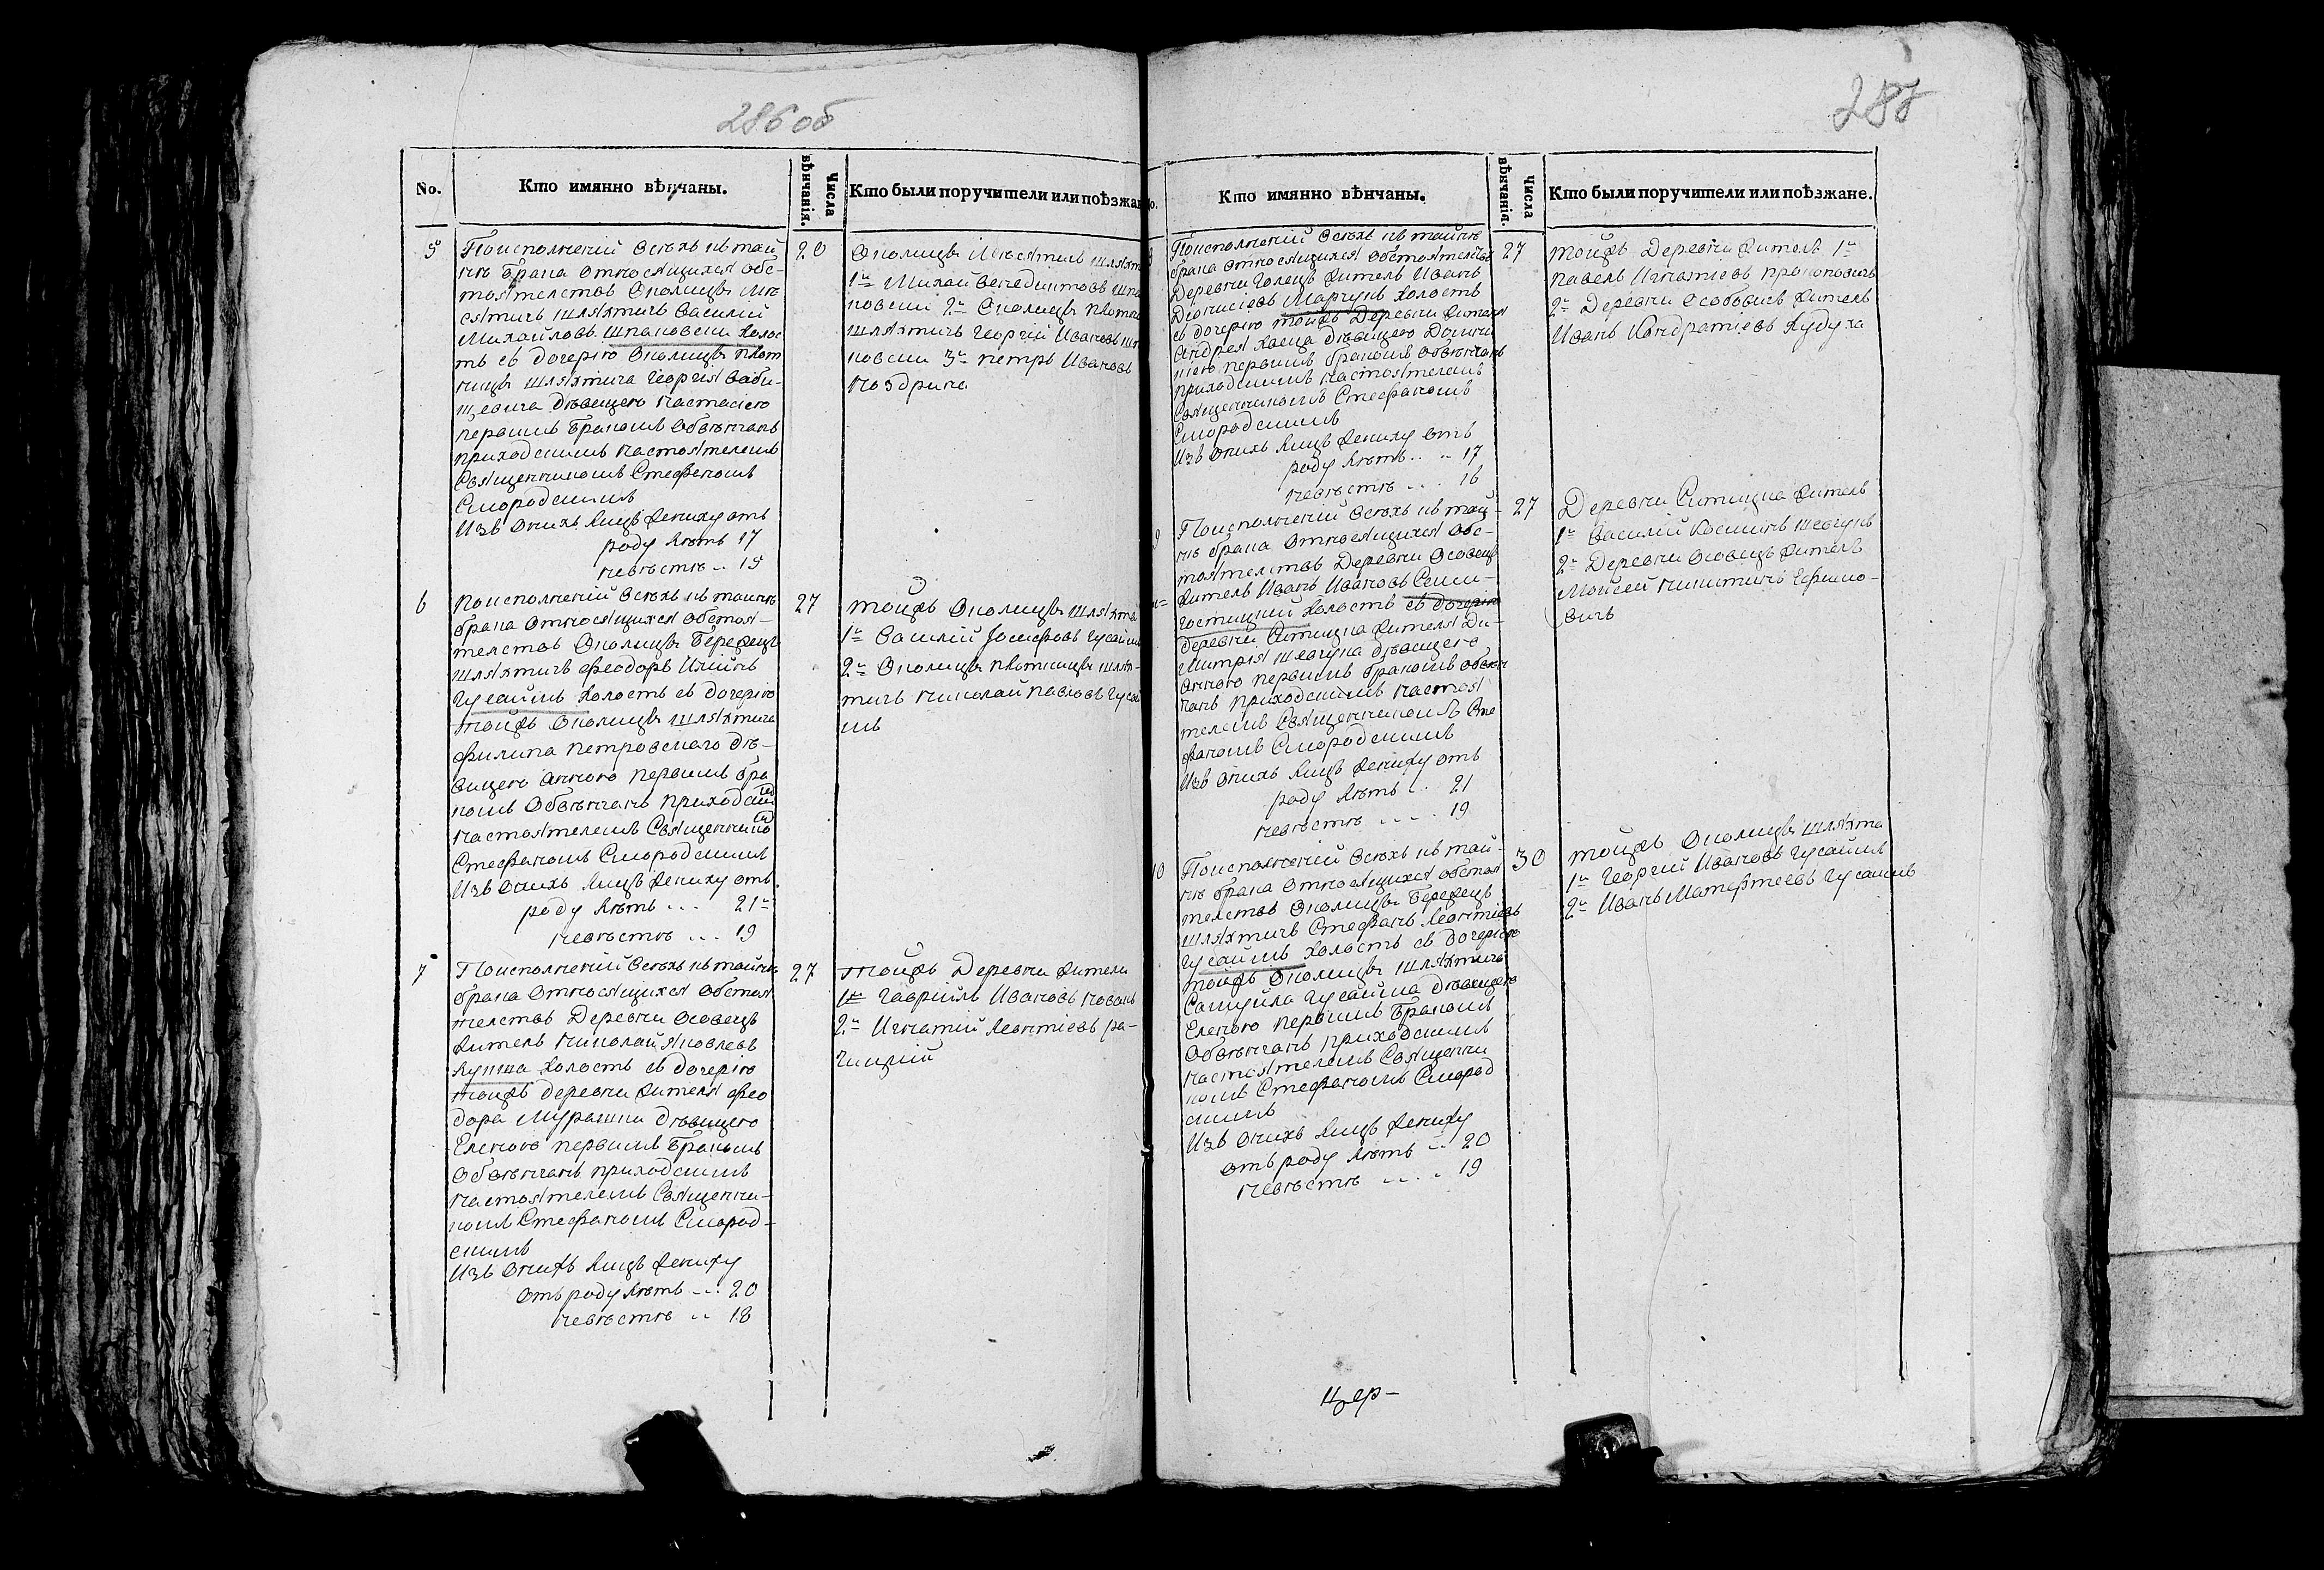 286 об
No.
Кто имянно вѣнчаны.
Числа вѣнчанія.
Кто были поручители или поѣзжан
5
20
Поисполненіи всѣхъ къ тай
нѣ брака относящихся обс-
тоятелствъ Околицы Мѣ
сятичъ шляхтичъ Василій
Михайловъ Шпаковскій холос
тъ съ дочерію Околицы Плот
ницы шляхтича Георгія
дѣвицею Настасіею
первымъ бракомъ обвѣнчанъ
приходскимъ настоятелемъ
Священникомъ Стефаномъ
Смородскимъ
Изъ оныхъ лицъ жениху отъ
роду лѣтъ 17
невѣстѣ .. 15
Околицы Мѣсятичъ шляхт
1й Михаил Венедиктовъ
ковскій 2й Околицы Плотни
шляхтичъ Георгій Ивановъ
ковскій 3й Петръ Ивановъ
Ноздрина
6
27
Поисполненіи всѣхъ къ тайнѣ
брака относящихся обстоя-
телствъ Околицы Бережцы
шляхтичъ Феодоръ Ильинъ
Гусаимъ холостъ съ дочерію
тойжъ Околицы шляхтича
Филипа Петровскаго дѣ-
вицею Анною первымъ бра
комъ обвѣнчанъ приходским
настоятелемъ Священником
Стефаномъ Смородскимъ
Изъ оныхъ лицъ жениху отъ
роду лѣтъ ... 21
невѣстѣ ... 19
тойжъ Околицы шляхта
1й Василій Іосифовъ Гусаим
2й Околицы Плотницы шлях-
тичъ Николай Павловъ Гусаи
мъ
7
27
Поисполненіи всѣхъ къ тайнѣ
брака относящихся обстоя
телствъ Деревни Осовецъ
житель Николай Яковлевъ
Купша холостъ съ дочерію
тойжъ деревни жителя Фео
дора Мурашки дѣвицею
Еленою первымъ бракомъ
обвѣнчанъ приходскимъ
настоятелемъ Священни-
комъ Стефаномъ Смород-
скимъ
Изъ оныхъ лицъ жениху
отъ роду лѣтъ ... 20
невѣстѣ .. 18
тойжъ Деревни жители
1й Гавріилъ Ивановъ Новакъ
2й Игнатій Леонтіевъ Ра-
чицкій
287
Кто имянно вѣнчаны.
Числа вѣнчанія.
Кто были поручители или поѣзжане.
27
Поисполненіи всѣхъ къ тайнѣ
брака относящихся обстоятелствъ
Деревни Голецъ житель Иванъ
Діонисіевъ Марчукъ холостъ
съ дочерію тойжъ Деревни жителя
Андрея дѣвицею Домни
кіею первымъ бракомъ обвѣнчанъ
приходскимъ настоятелемъ
Священникомъ Стефаномъ
Смородскимъ
Изъ оныхъ лицъ жениху отъ
роду лѣтъ .. .. 17
невѣстѣ ... 16
тойжъ Деревни житель 1й
Павелъ Игнатіевъ Прокоповичъ
2й Деревни житель
Иванъ Кондратіевъ Кудука
9
27
Поисполненіи всѣхъ къ тай-
нѣ брака относящихся обс-
тоятелствъ Деревни Осовецъ
житель Иванъ Ивановъ Семи-
гостицкій холостъ съ дочерію
Деревни Ситицка жителя Ди-
митрія Шевчука дѣвицею
Анною первымъ бракомъ обвѣн
чанъ приходскимъ настоя
телемъ Священникомъ Сте
фаномъ Смородскимъ
Изъ оныхъ лицъ жениху отъ
роду лѣтъ .. 21
невѣстѣ .... 19
Деревни Ситицка житель
1й Василій Косминъ Шевчукъ
2й Деревни Осовецъ житель
Мойсей Никитинъ Ефимо-
вичъ
10
30
Поисполненіи всѣхъ къ тай-
нѣ брака относящихся обстоя
телствъ Околицы Бережцы
шляхтичъ Стефанъ Леонтіевъ
Гусаимъ холостъ съ дочерію
тойжъ Околицы шляхтича
Самуйла Гусаима дѣвицею
Еленою первымъ бракомъ
обвѣнчанъ приходскимъ
настоятелемъ Священни
комъ Стефаномъ Смород
скимъ
Изъ оныхъ лицъ жениху
отъ роду лѣтъ ... 20
невѣстѣ .... 19
тойжъ Околицы шляхта
1й Георгій Ивановъ Гусаимъ
2й Иванъ Матфіевъ Гусаимъ
Цер-